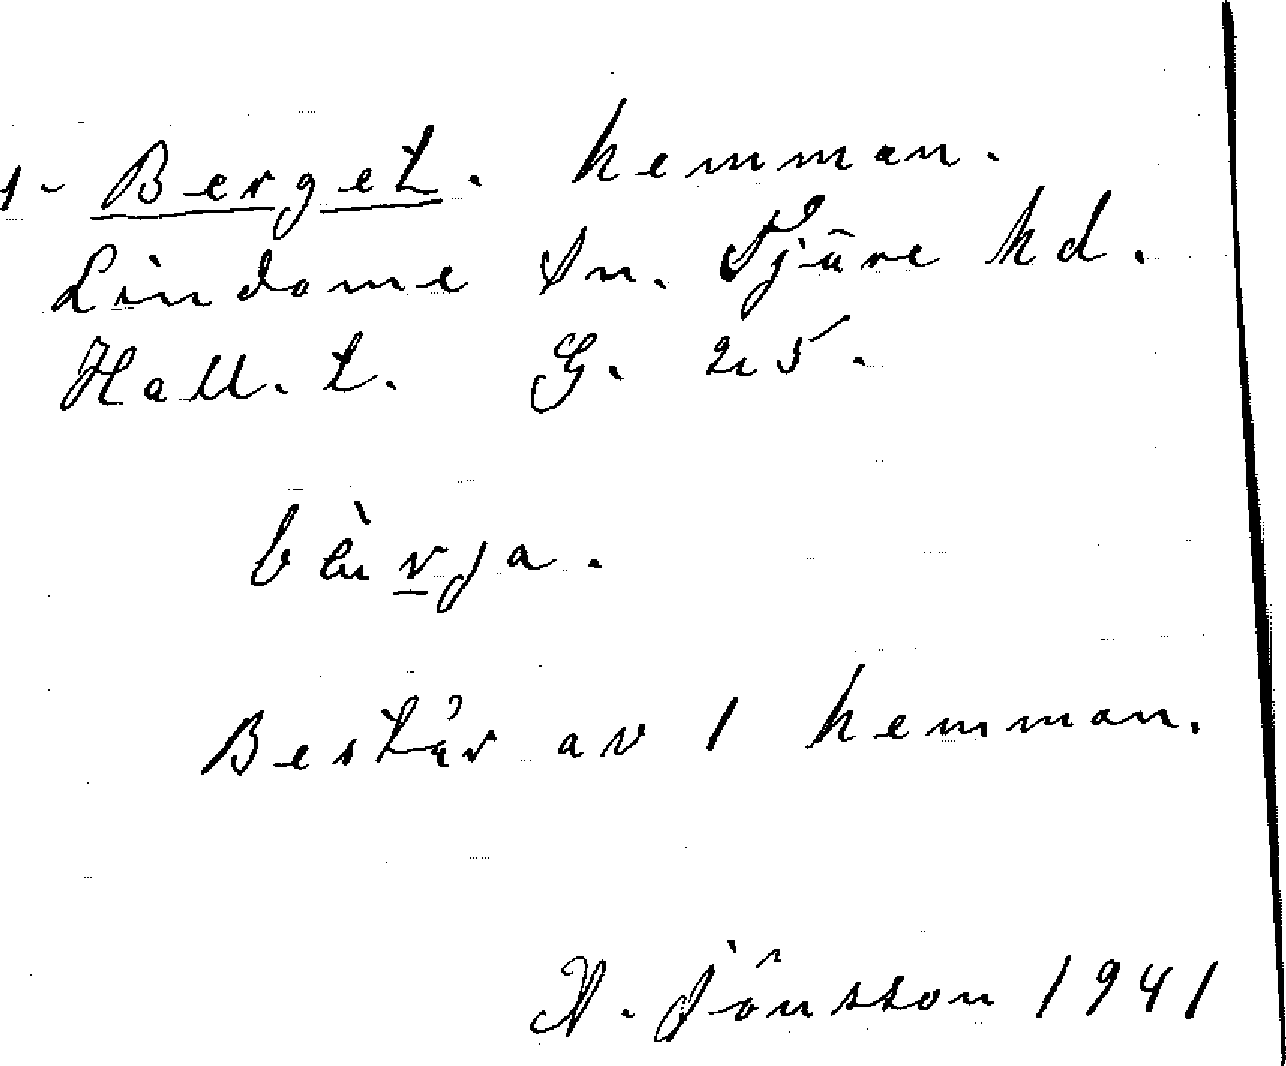 1- Berget. hemman.
Lindome sn. Fjäre hd.
Hall. l. G. 25.
bæ̀rja.
Består av 1 hemman.
N. Jönsson 1941